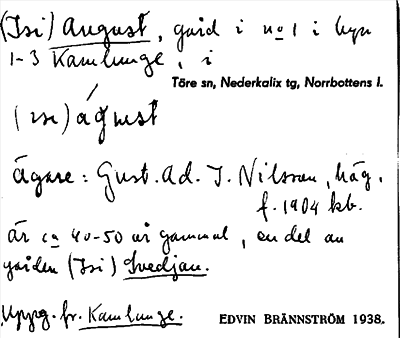 (Isi) August, gård i no 1 i byn
1-3 Kamlunge, i
Töre sn, Nederkalix tg, Norrbottens l.
(ısı) águst
ägare: Gust. Ad. J. Nilsson, häg.
f. 1904 kb.
Är ca 40-50 år gammal, en del av
gården (Isi) Svedjan.
Uppg. fr. Kamlunge.
EDVIN BRÄNNSTRÖM 1938.